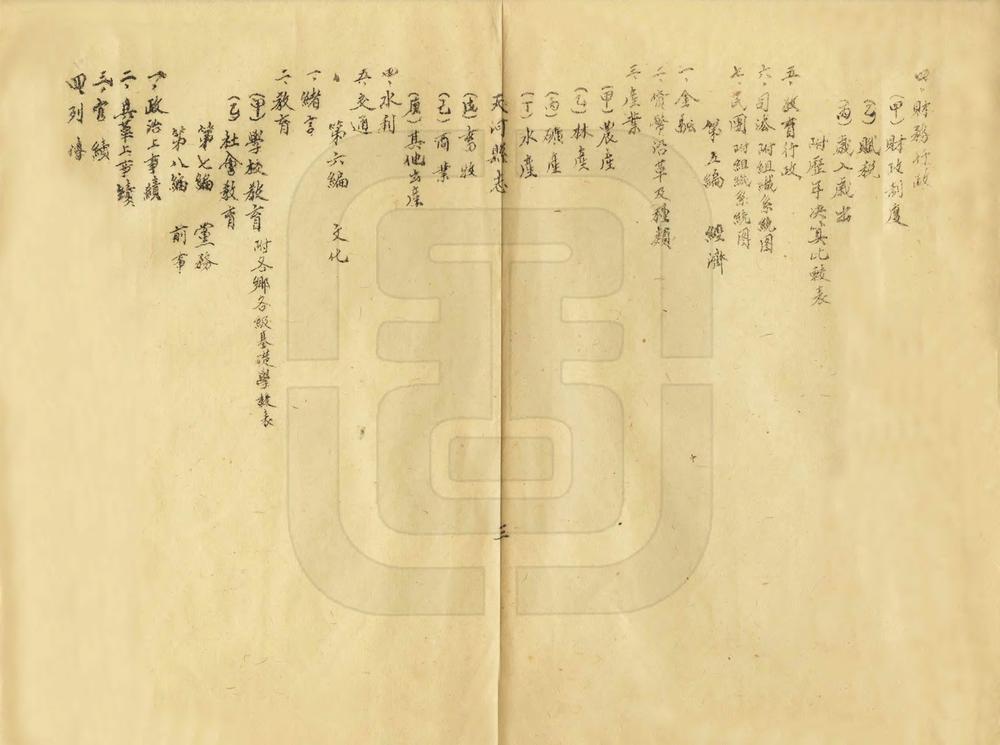 四、財務行政
(甲)財政制度
(乙)賦税
(丙)歲入歲出
附歷年决算比較表
五、教育行政
六、司法 附組織系統圖
七、民團 附組織系統圖
第五編 經濟
一、金融
二、貨幣沿革及種類
三、產業
(甲)農產
(乙)林產
(丙)礦產
(丁)水產
天河縣志
(戊)畜牧
(己)商業
(庚)其他出產
四、水利
五、交通
三
第六編 文化
一、緒言
二、教育
(甲)學校教育 附各鄉各級基礎學校表
(乙)社會教育
第七編 黨務
第八編 前事
一、政治上事績
二、兵革上事績
三、宦績
四、列傳